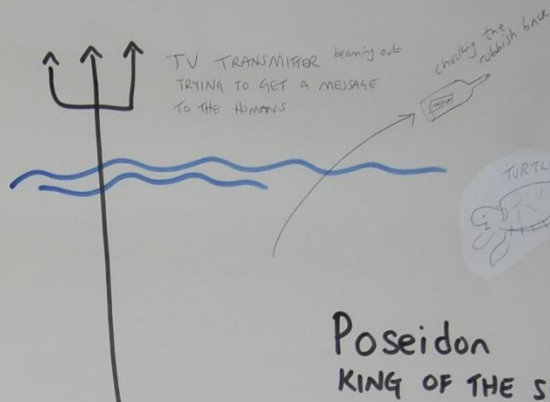 TV TRANSMITTER beaming out
TRYING TO GET A MESSAGE
TO THE HUMANS
chucking the
rubbish back
TURTL
Poseidon
KING OF THE S